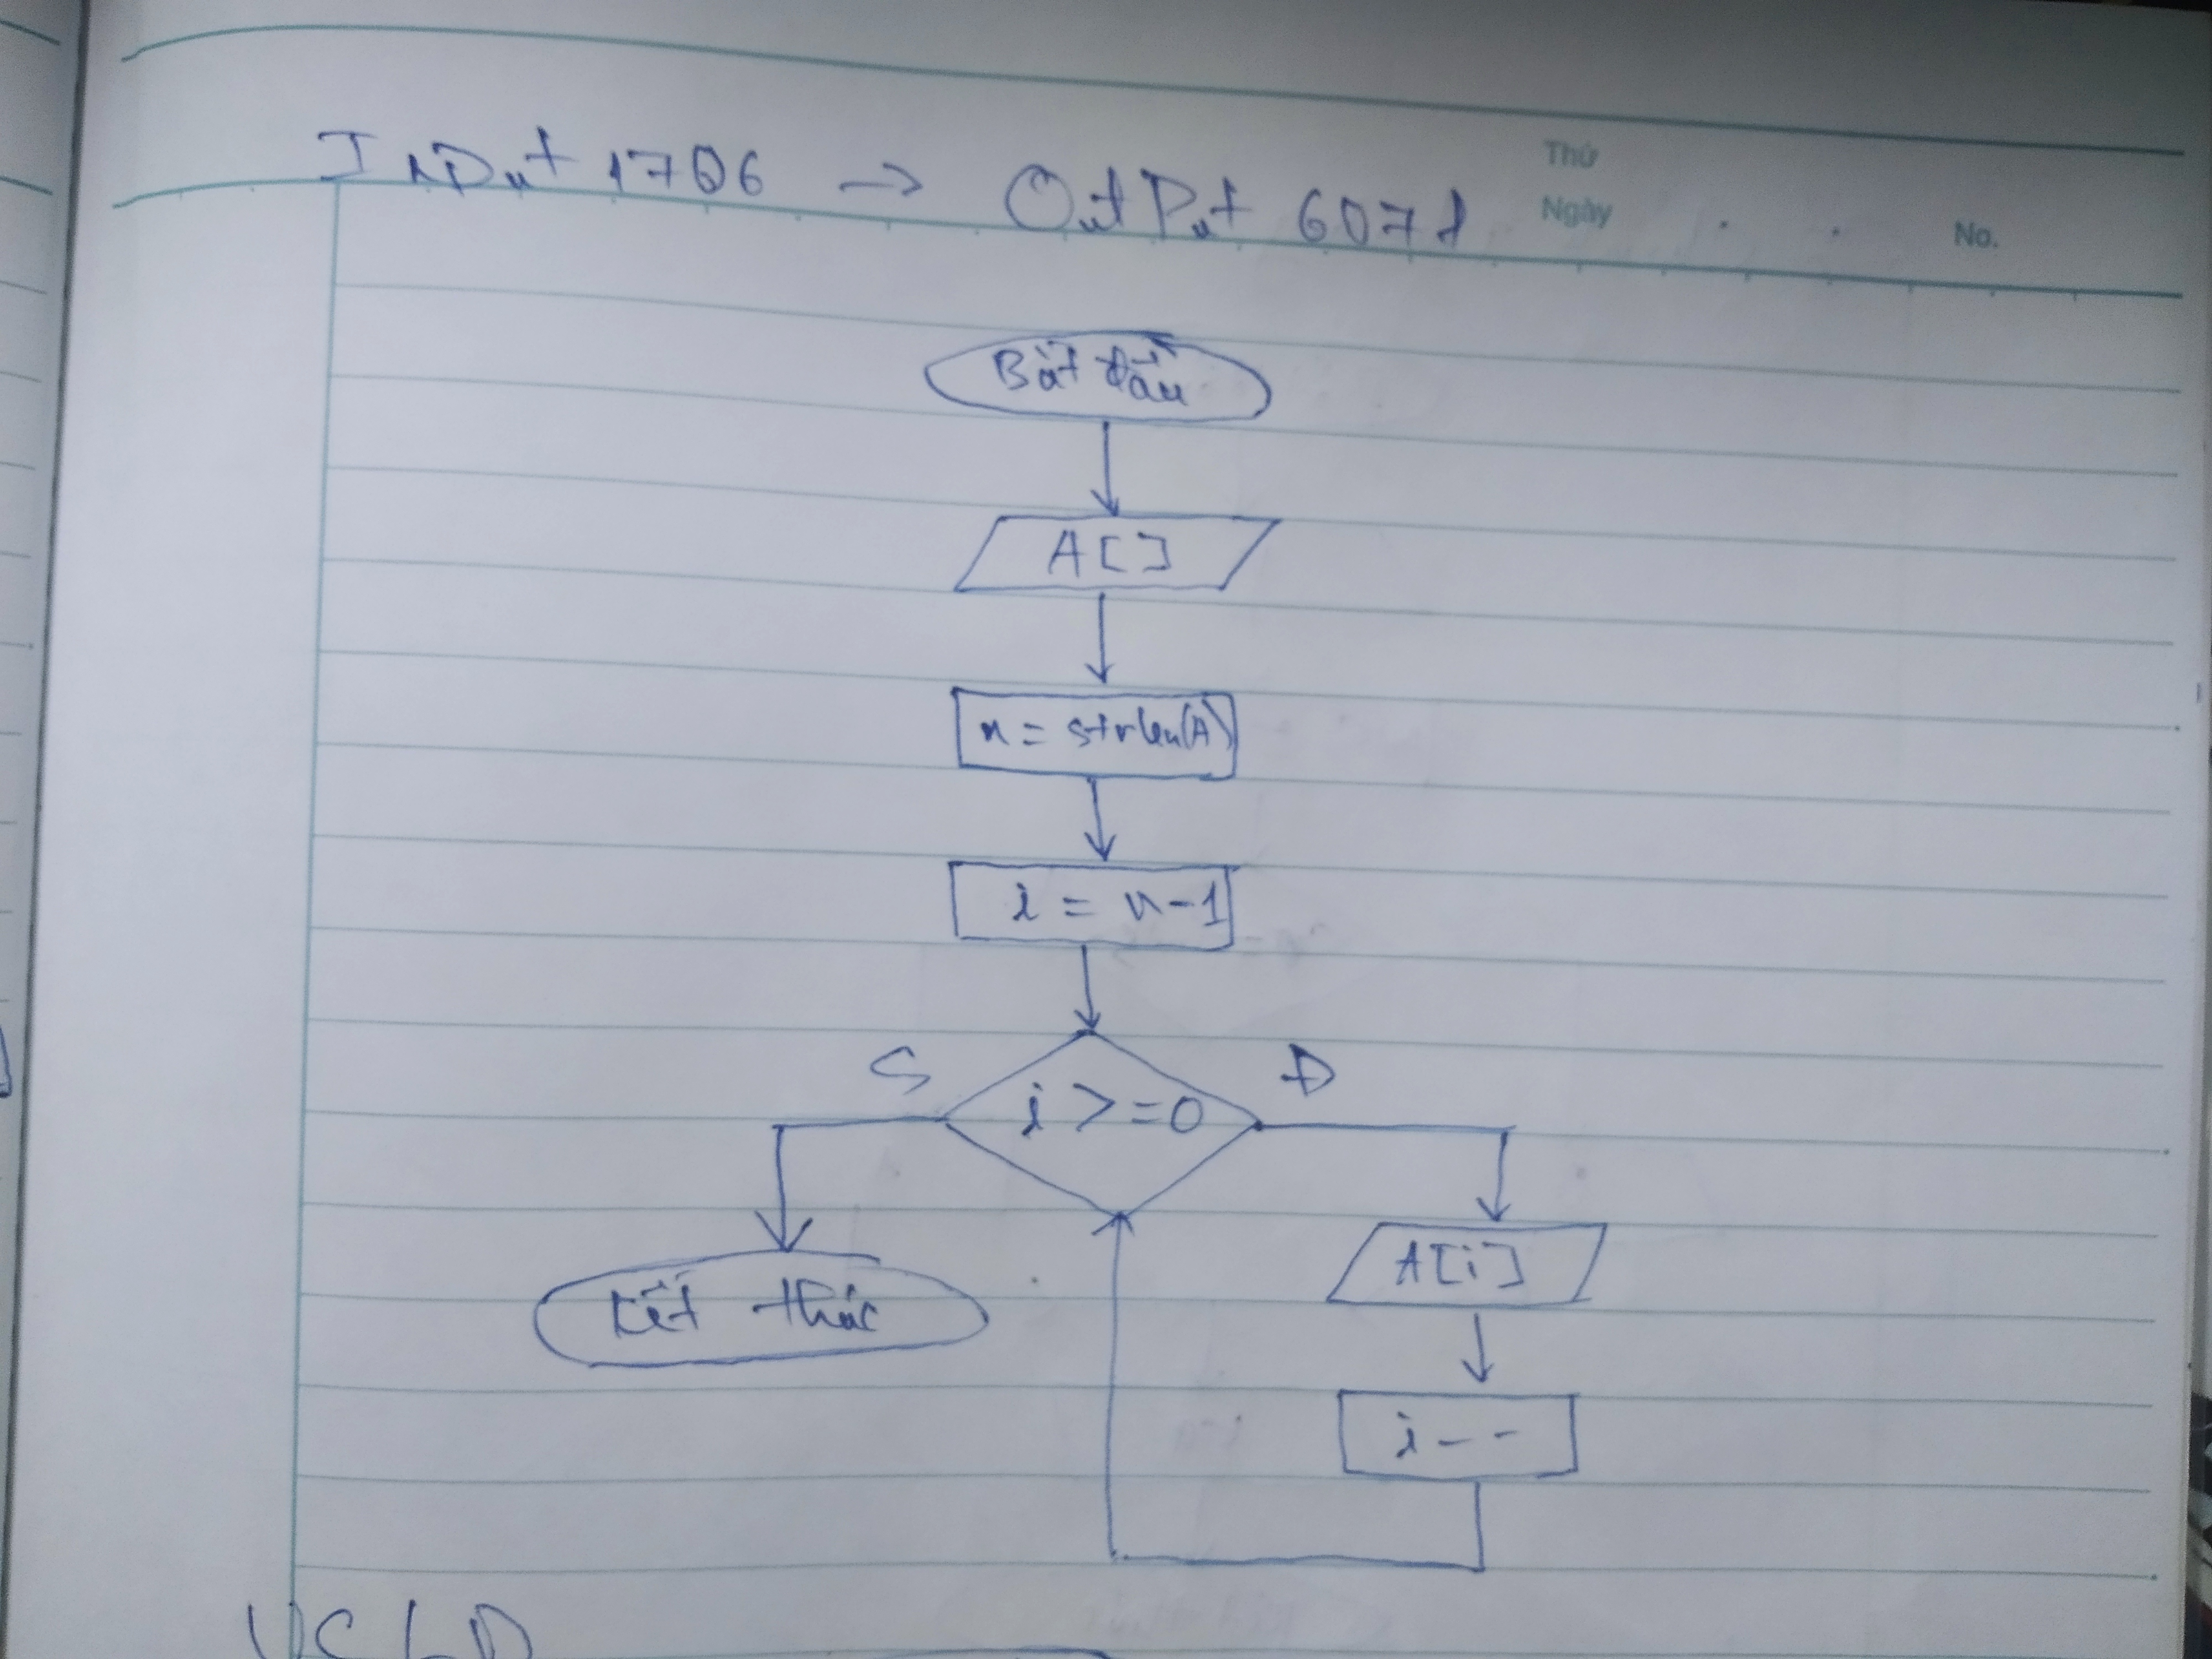 InPut 1706 → OutPut 6071
Thứ
Ngày
No.
Bắt đầu
A[]
n = strlen(A)
i = n-1
S
Đ
i >=0
A[i]
Kết thúc
i--
UCLN